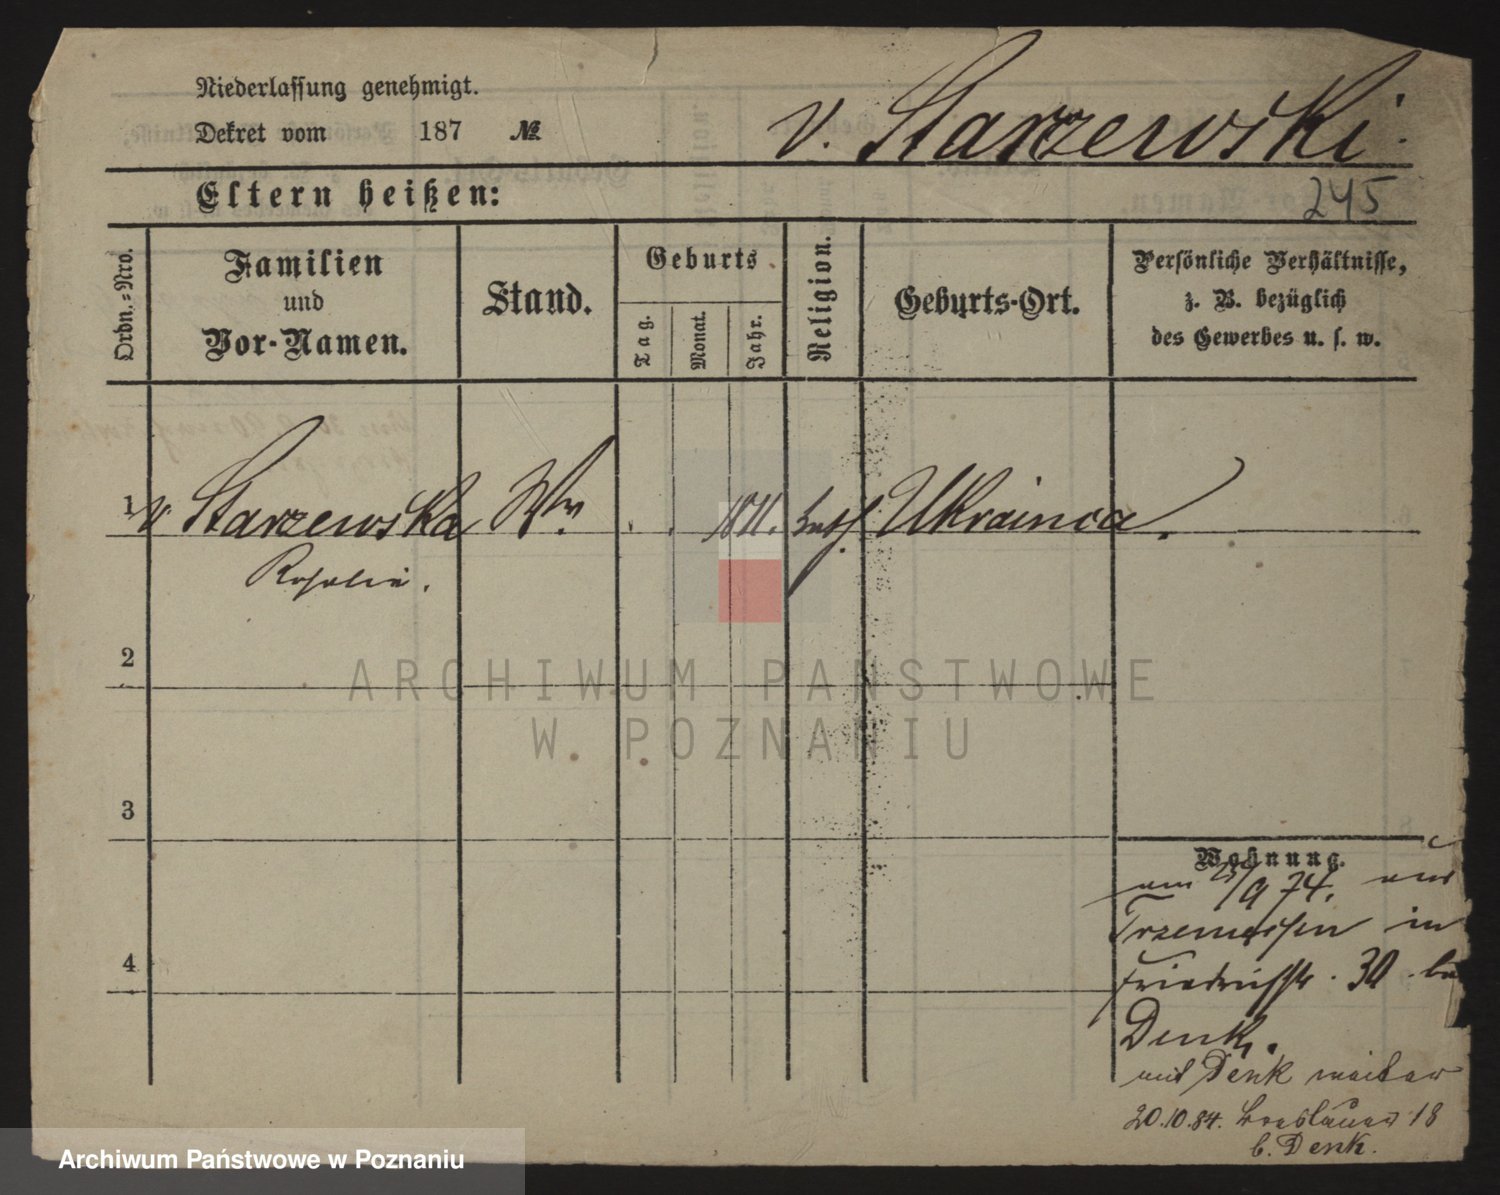 Niederlassung genehmigt.
Dekret vom 187 №
v. Starzewski.
245
Eltern heißen:
Ordn.=Nro.
Familien
und
Vor-Namen.
Stand.
Geburts
Tag.
Monat.
Jahr.
Religion.
Geburts-Ort.
Persönliche Verhältnisse,
z. B. bezüglich
des Gewerbes u. s. w.
1 v. Starzewska Ww. . . 1811. kath. Ukrainca.
Rosalie.
2
ARCHIWUM PAŃSTWOWE
W POZNANIU
3
Wohnung.
am /9 74. aus
Trzemessen in
Friedrichstr. 30 bei
Denk.
mit Denk weiter
20.10.84. Breslauer 18
b. Denk.
4
Archiwum Państwowe w Poznaniu